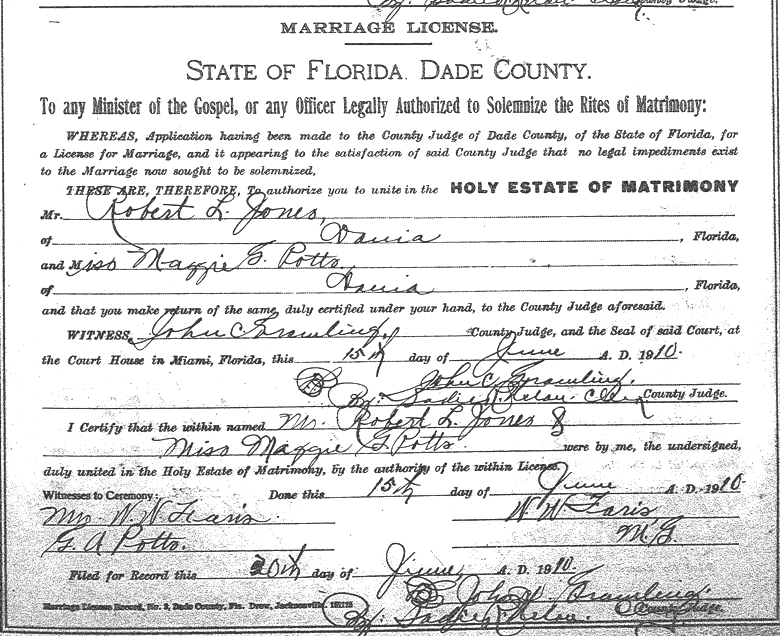 MARRIAGE LICENSE.
STATE OF FLORIDA. DADE COUNTY.
To any Minister of the Gospel, or any Officer Legally Authorized to Solemnize the Rites of Matrimony:
WHEREAS, Application having been made to the County Judge of Dade County, of the State of Florida, for
a License for Marriage, and it appearing to the satisfaction of said County Judge that no legal impediments exist
to the Marriage now sought to be solemnized,
THESE ARE, THEREFORE, To authorize you to unite in the HOLY ESTATE OF MATRIMONY
Mr. Robert L. Jones,
of Dania, Florida,
and Miss Maggie G. Potts
of Dania, Florida,
and that you make return of the same, duly certified under your hand, to the County Judge aforesaid.
WITNESS, John C. Gramling, County Judge, and the Seal of said Court, at
the Court House in Miami, Florida, this 15th day of June A. D. 1910.
John C. Gramling.
By: Sadie County Judge.
I Certify that the within named Mr. Robert L. Jones &
Miss Maggie G. Potts were by me, the undersigned,
duly united in the Holy Estate of Matrimony, by the authority of the within License.
Witnesses to Ceremony: Done this 15th day of June A. D. 1910.
Mrs W. W. Faris. W W Faris
G. A Potts. M.G.
Filed for Record this 20th day of June A. D. 1910.
John C. Gramling.
Marriage License Record, No. 3, Dade County, Fla. Drew, Jacksonville. By: Sadie County Judge.